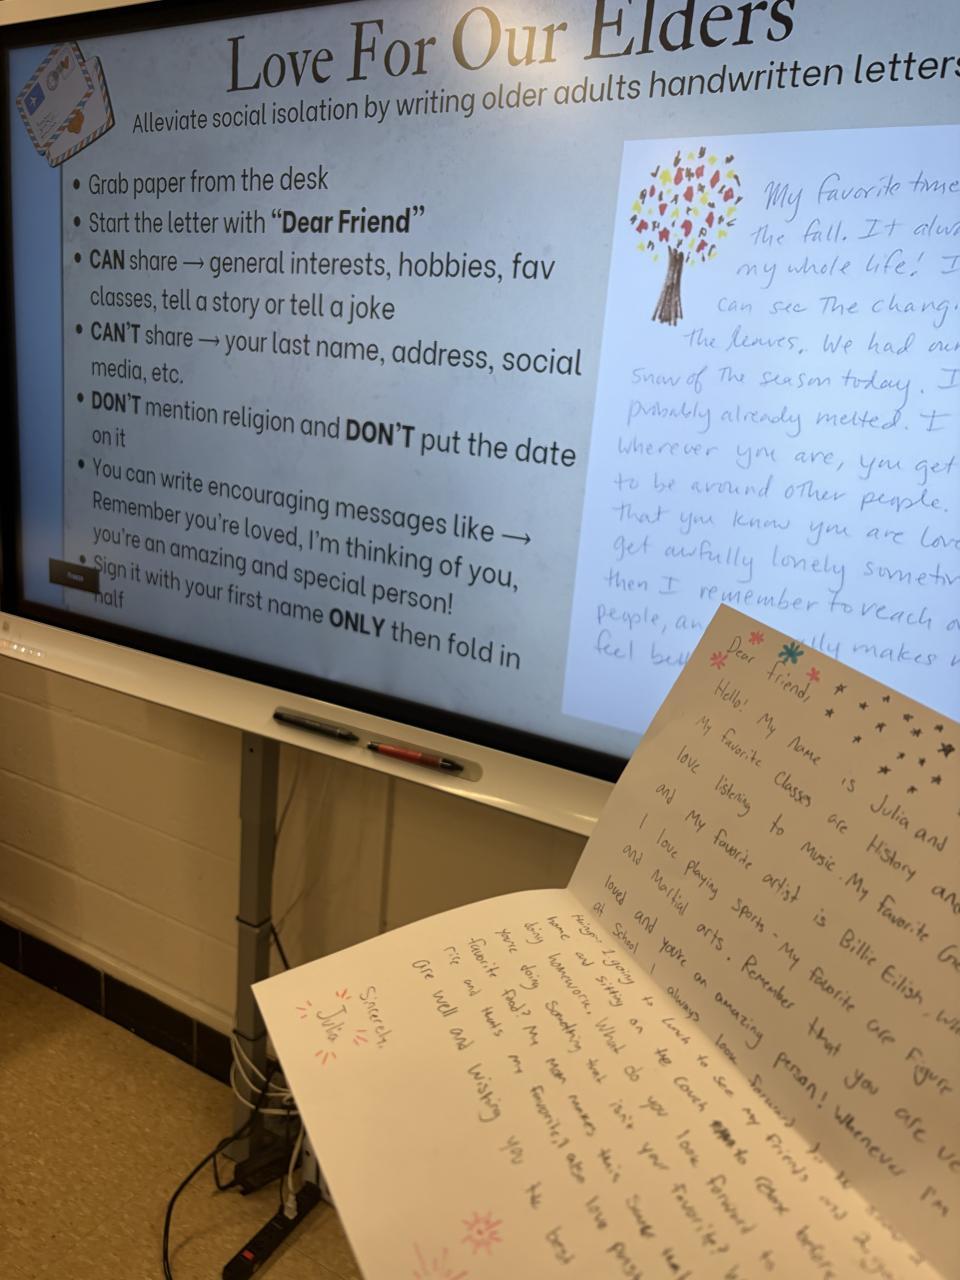 Love For Our Elders
Alleviate social isolation by writing older adults handwritten letters
• Grab paper from the desk
• Start the letter with “Dear Friend”
• CAN share → general interests, hobbies, fav
classes, tell a story or tell a joke
• CAN'T share → your last name, address, social
media, etc.
• DON'T mention religion and DON'T put the date
on it
• You can write encouraging messages like →
Remember you're loved, I'm thinking of you,
you're an amazing and special person!
• Sign it with your first name ONLY then fold in
half
My favorite time
the fall. It
my whole life! I
can see the
the leaves. We had our
snow of the season today. I
probably already melted. I
wherever you are, you get
to be around other people.
that you know you are
get awfully lonely
then I remember to reach
people,
feel makes
Dear friend,
Hello! My name is Julia and
My favorite classes are History and
love listening to music. My favorite
and My favorite artist is Billie Eilish.
I love playing sports - My favorite are Figure
and Martial arts. Remember that you are
loved and you're an amazing person! Whenever I'm
at school I always look forward to
going to lunch to see my friends and
home and sitting on the couch to relax before
doing homework. What do you look forward to
you're doing something that isn't your favorite?
favorite food? My mom makes this
rice and that's my favorite, I also love
are well and wishing you the best
Sincerely,
Julia